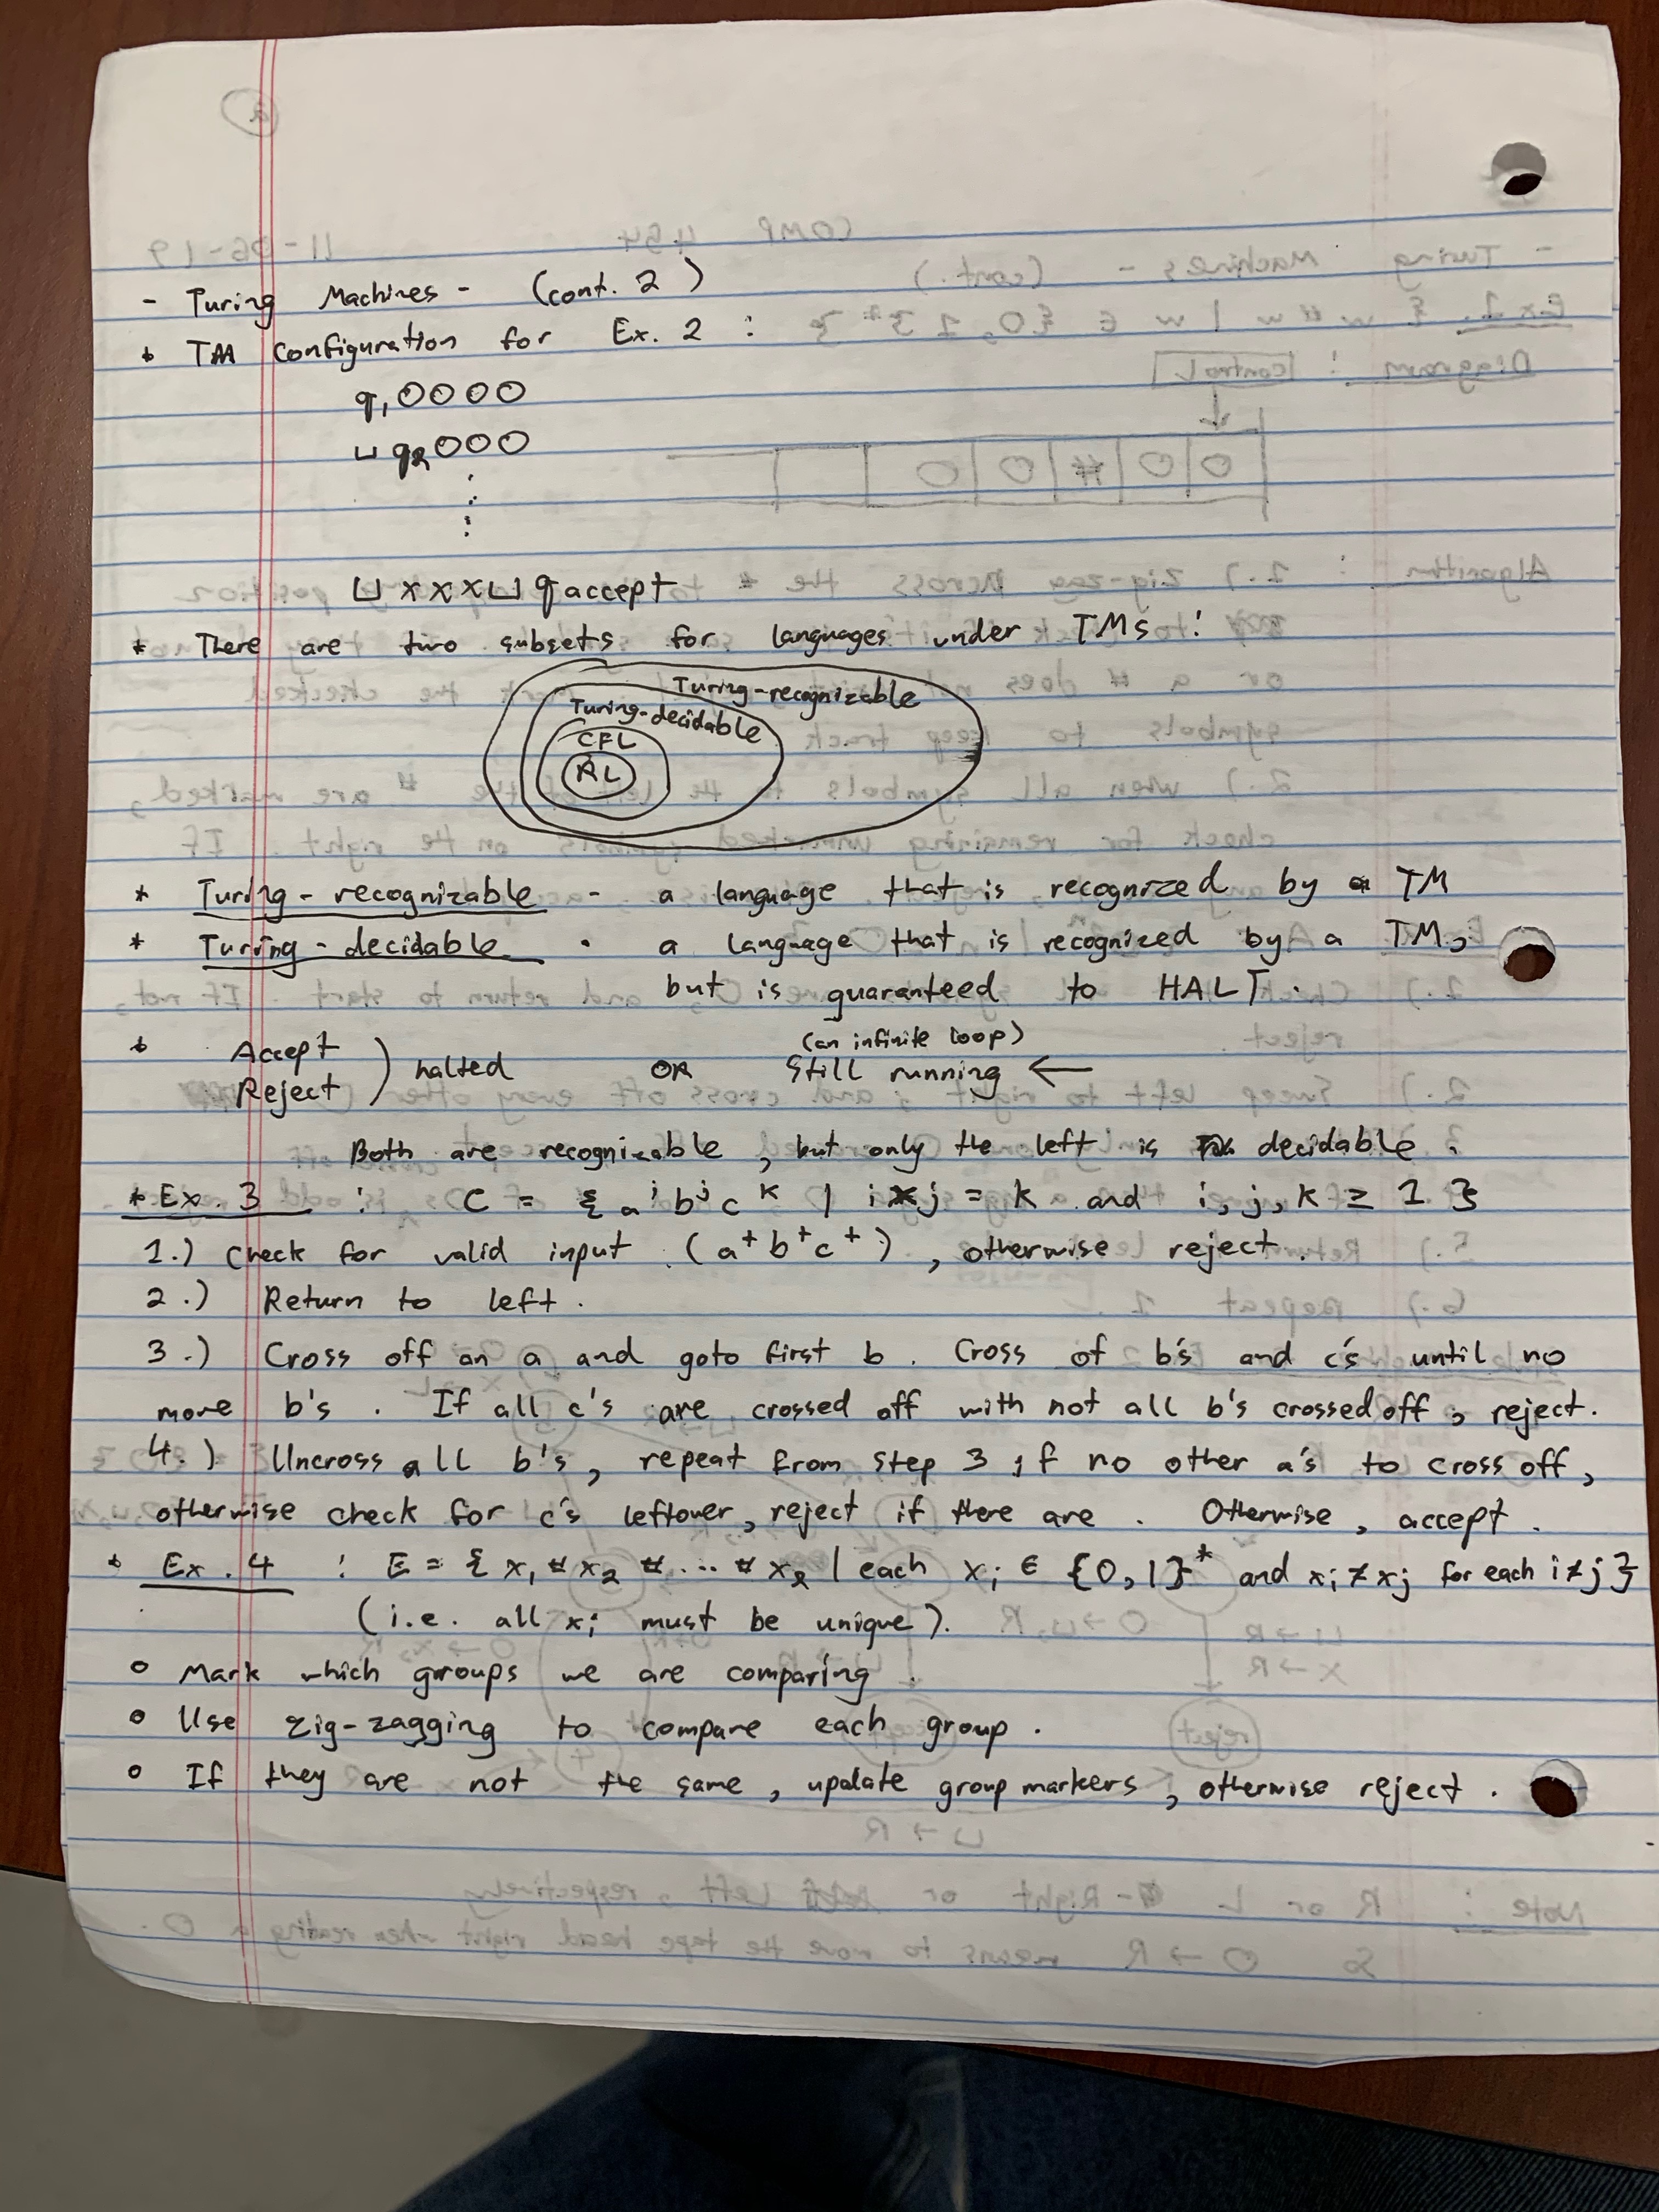 - Turing Machines - (cont. 2)
* TM configuration for Ex. 2 :
q₁0000
⊔q₂000
⋮
⊔xxx⊔qaccept
* There are two subsets for languages under TMs :
Turing-recognizable
Turing-decidable
CFL
RL
* Turing-recognizable - a language that is recognized by a TM
* Turing-decidable - a language that is recognized by a TM,
but is guaranteed to HALT.
(an infinite loop)
* Accept
Reject ) halted OR Still running ←
Both are recognizable, but only the left is decidable.
* Ex. 3 : C = { aⁱ bʲ cᵏ | i × j = k and i, j, k ≥ 1 }
1.) Check for valid input (a⁺b⁺c⁺), otherwise reject.
2.) Return to left.
3.) Cross off an a and goto first b. Cross of b's and c's until no
more b's. If all c's are crossed off with not all b's crossed off, reject.
4.) Uncross all b's, repeat from step 3 if no other a's to cross off,
otherwise check for c's leftover, reject if there are. Otherwise, accept.
* Ex. 4 : E = { x₁ # x₂ # ... # xₗ | each xᵢ ∈ {0,1}* and xᵢ ≠ xⱼ for each i ≠ j }
(i.e. all xᵢ must be unique).
o Mark which groups we are comparing.
o Use zig-zagging to compare each group.
o If they are not the same, update group markers, otherwise reject.